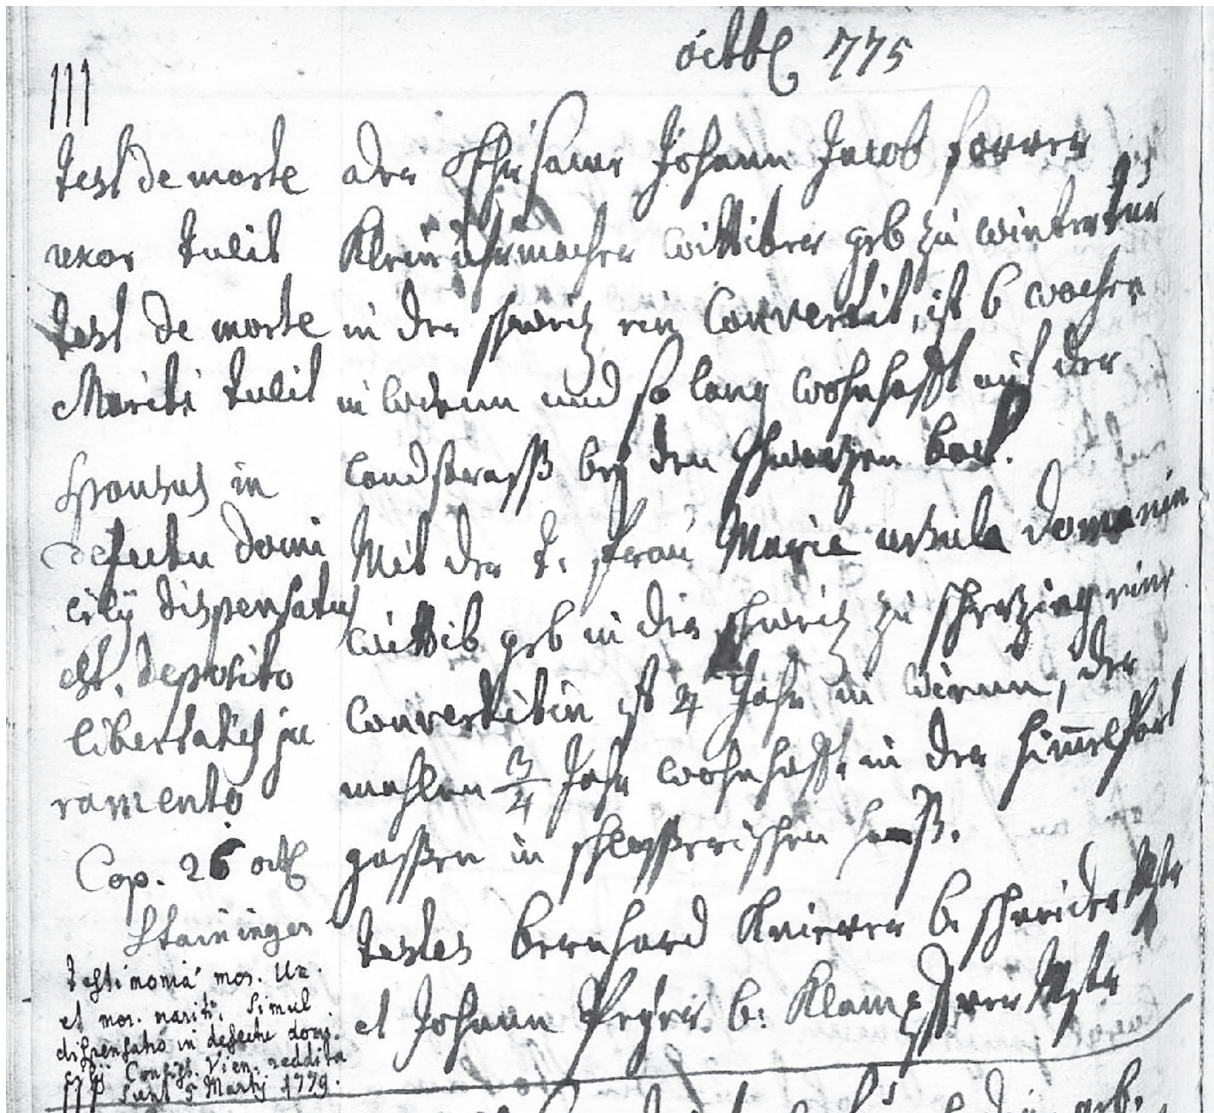 octb 775
III
Test de morte
uxor tulit
Test de morte
Mariti tulit
sponsus in
defectu domi
cilÿ dispensatus
est, deposito
libertatis ju
ramento
Cop. 26 octb
Staininger
Testimonia mor. Ux.
et mor. mariti, simul
dispensatio in defectu domi-
cilÿ Consist. Vien. reddita
sunt 5 Martÿ 1779.
der Ehrsame Johann Jacob forrer
Klein uhrmacher wittiber geb zu wintertur
in der schweitz ein Convertit, ist 6 wochen
in wienn und so lang wohnhafft auf der
landstrass beÿ den schwartzen bock.
Mit der t. frau Maria ursula
wittib geb in die schweitz zu eine
Convertitin ist 4 Jahr in wienn, der
mahlen 3/4 Jahr wohnhafft in der himmelport
gassen in hauß.
testes bernhard b. schneider Mstr
et Johann b. Klampferer Mstr